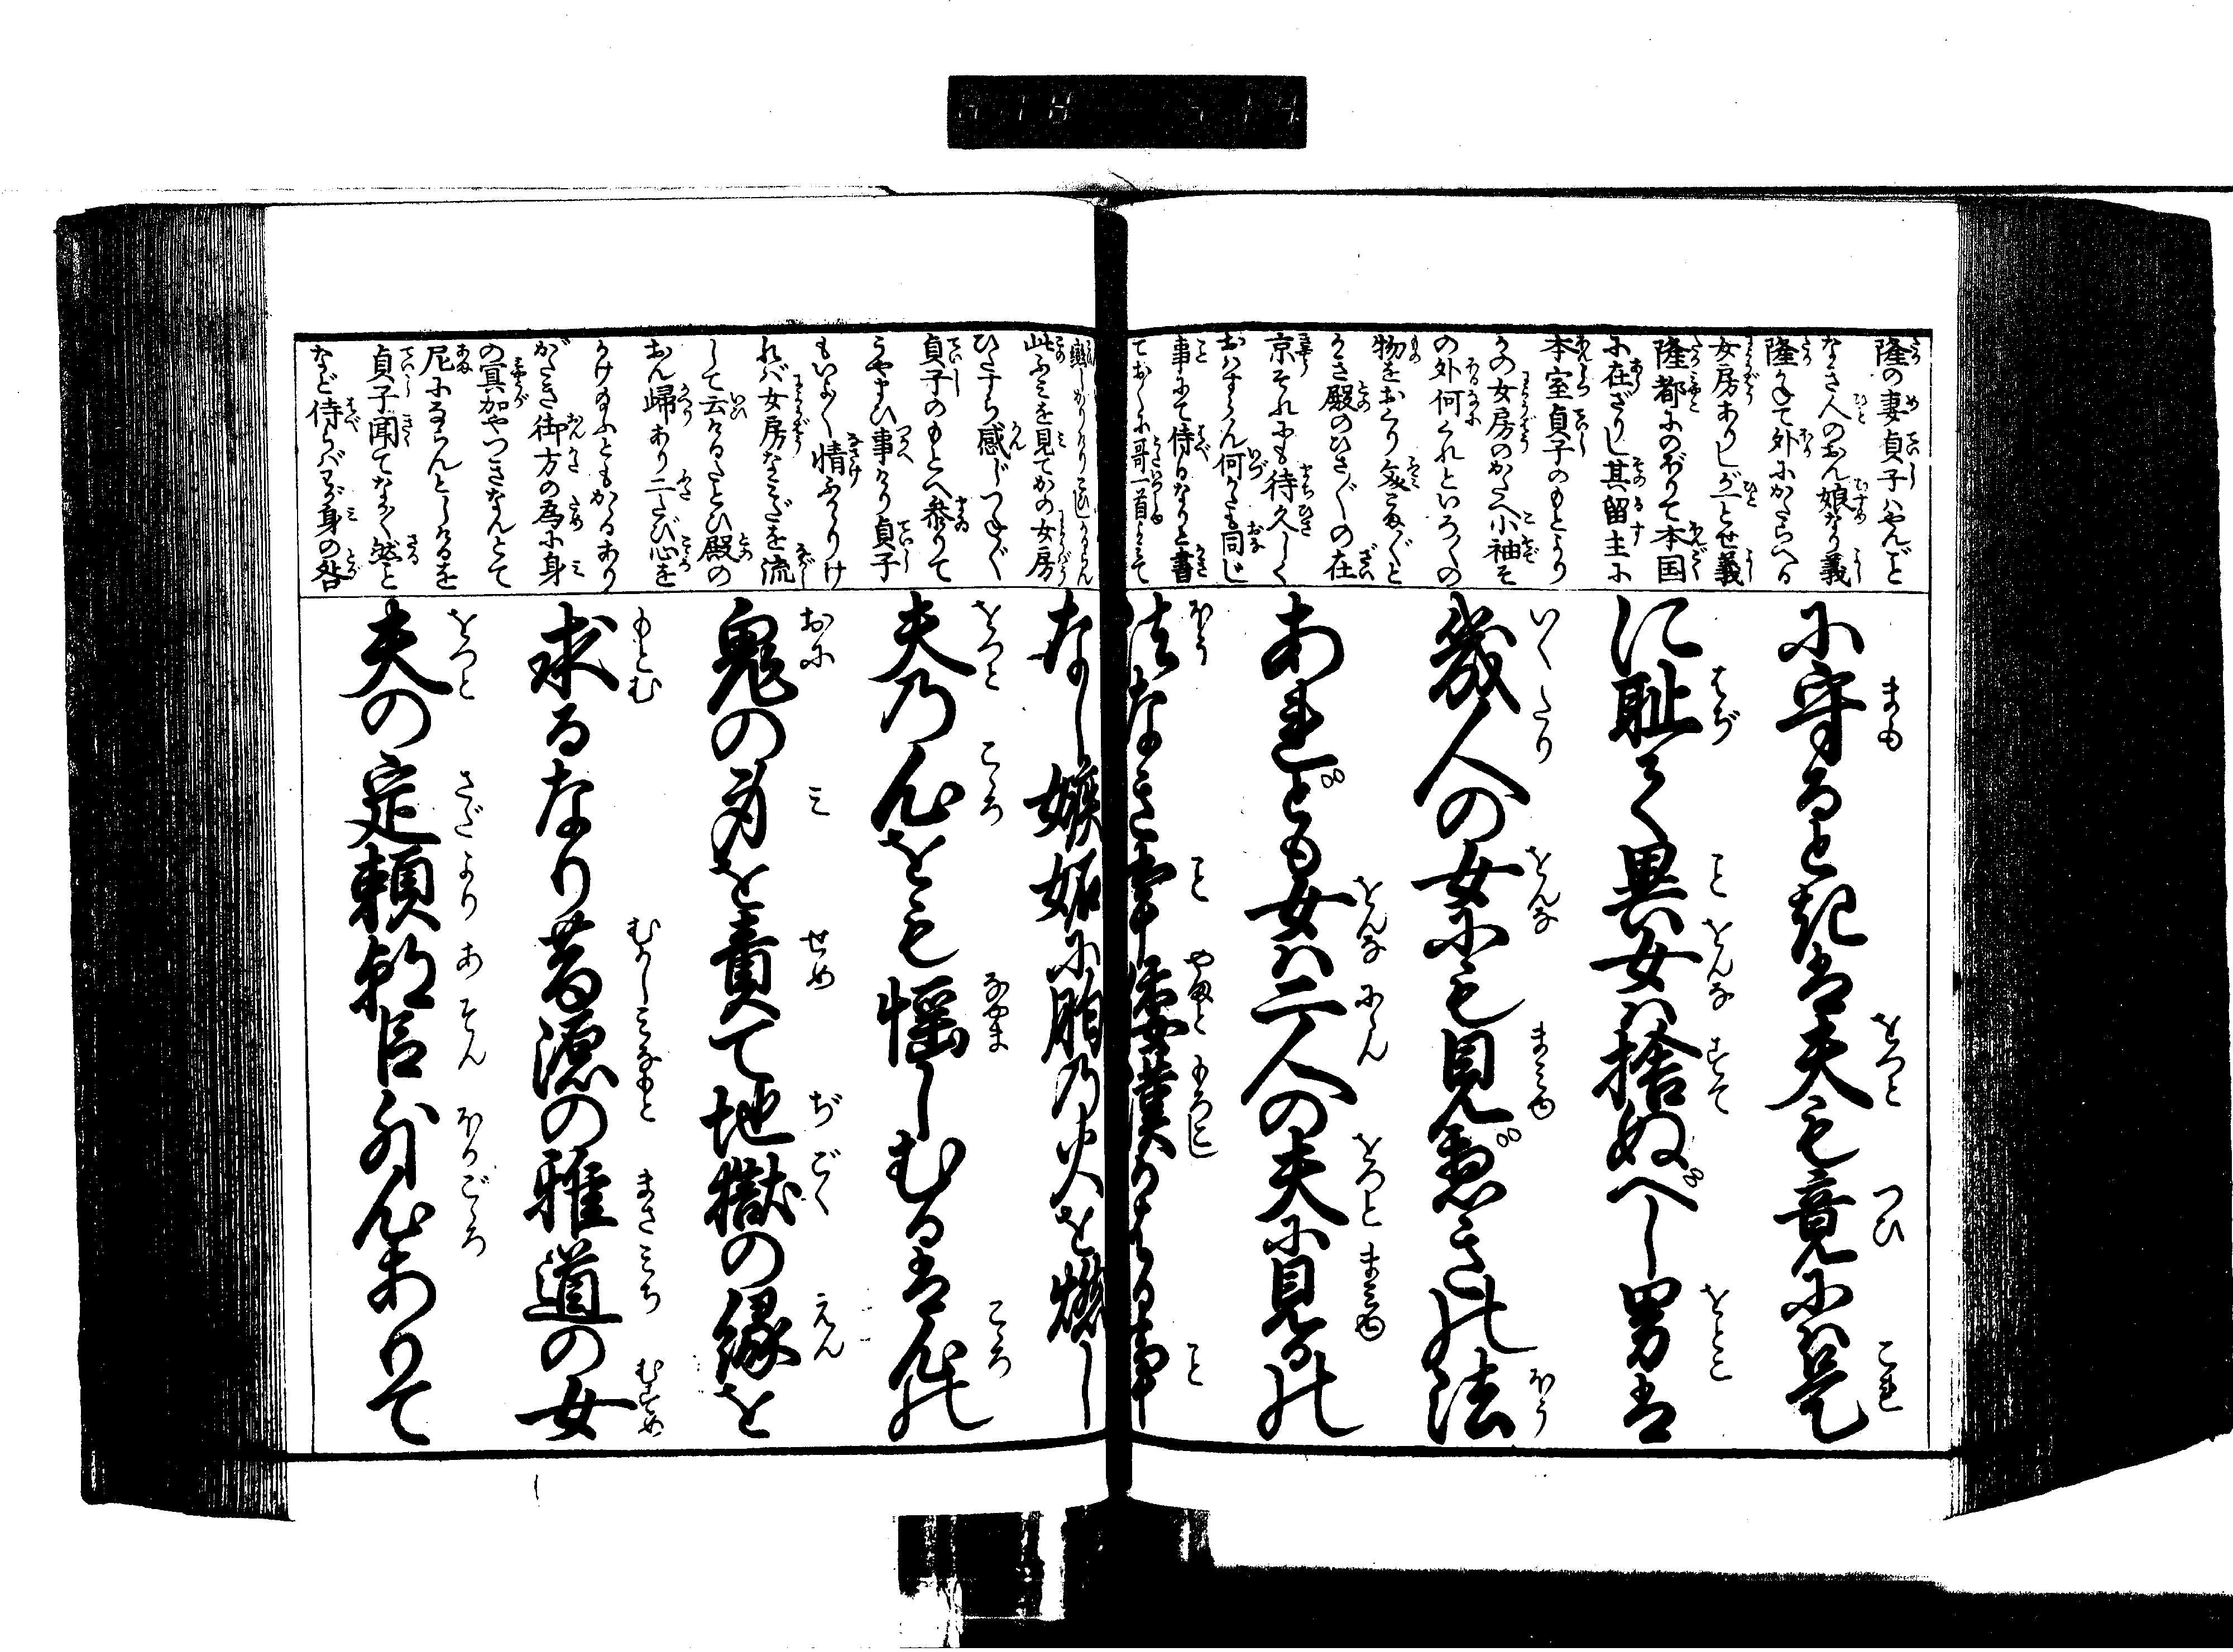 隆の妻貞子ハやんごと
なき人のおん娘なり義
隆かねて外にかたらへる
女房ありしが一とせ義
隆都にのぼりて本国
に在ざりし其留主に
本室貞子のもとより
かの女房のかたへ小袖そ
の外何くれといろ〳〵の
物をおくり文こま〴〵と
かき殿のひさ〴〵の在
京それにも待久しく
おハすらん何かたも同じ
事にて侍るなりと書
ておくに哥一首よミて
此ふミを見てかの女房
ひたすら感じつねに
貞子のもとへ参りて
うやまひ事けり貞子
もいよ〳〵情ふかりけ
れバ女房なミだを流
して云けるたとひ殿の
おん歸あり二たび心を
かけ給ふともかゝるあり
がたき御方の為に身
の冥加やつきなんとて
尼にならんとしけるを
貞子聞てなく然と
など侍らバわが身の咎
に守ると起は夫も竟にハ是
に恥て異女ハ捨ぬべし男は
幾人の女にも見ゆべきの法
あれども女ハ二人の夫に見るの
法なき事倭漢かはる事
なし嫉妬に胸の火を燃し
夫の心をも悩しむるは心の
鬼の身を責て地獄の縁を
求るなり昔源の雅道の女
夫の定頼朝臣外心ありて